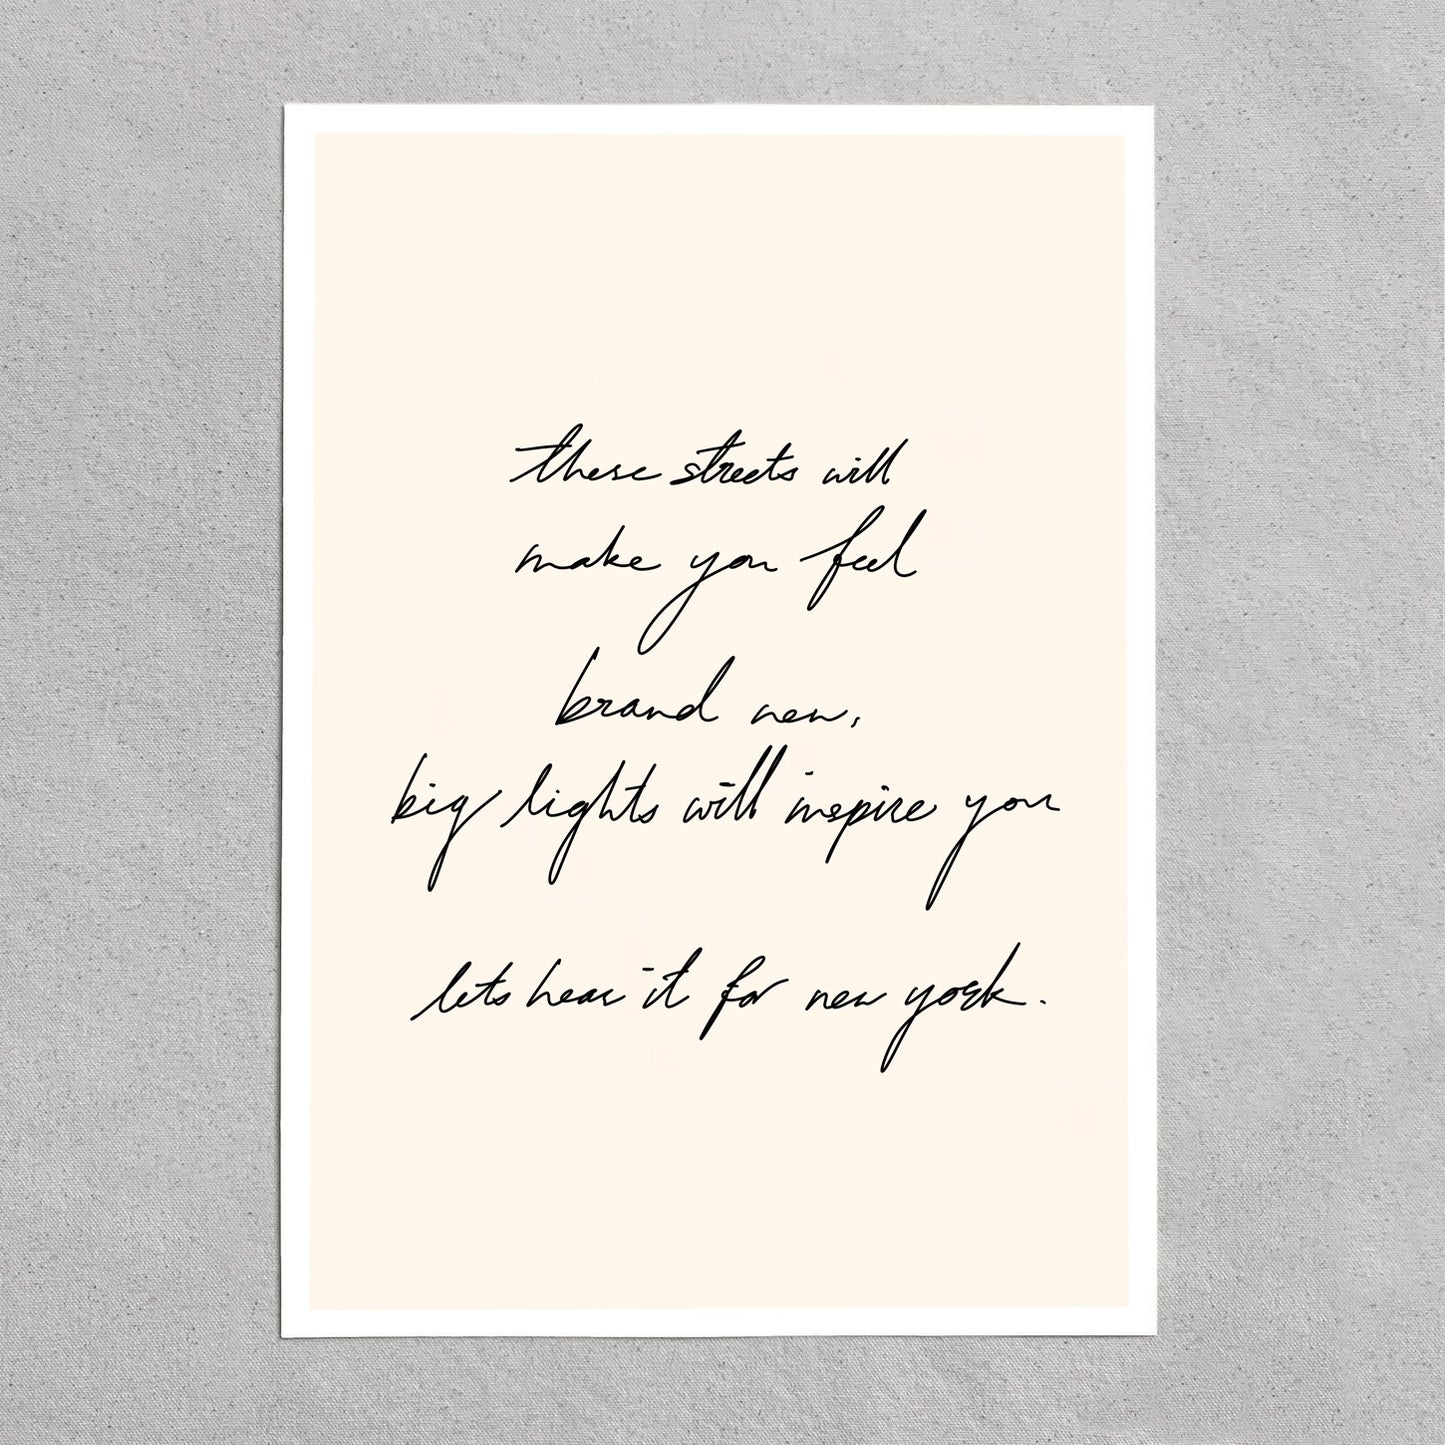 these streets will
make you feel
brand new,
big lights will inspire you
lets hear it for new york.